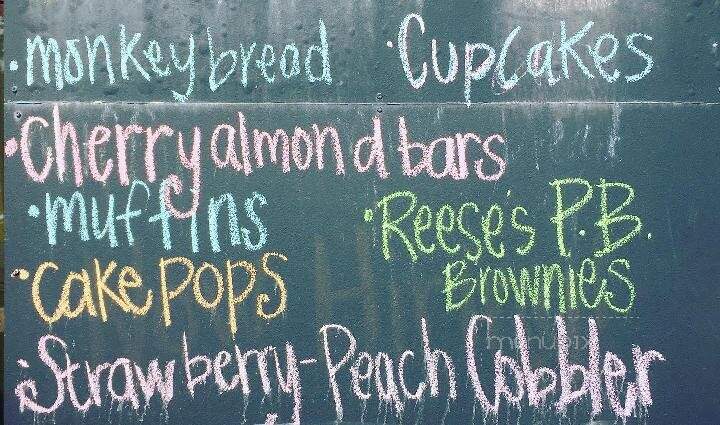 ·monkey bread ·Cupcakes
·Cherry almond bars
·muffins ·Reese's P.B.
·cake pops Brownies
menupix
·Strawberry-Peach Cobbler